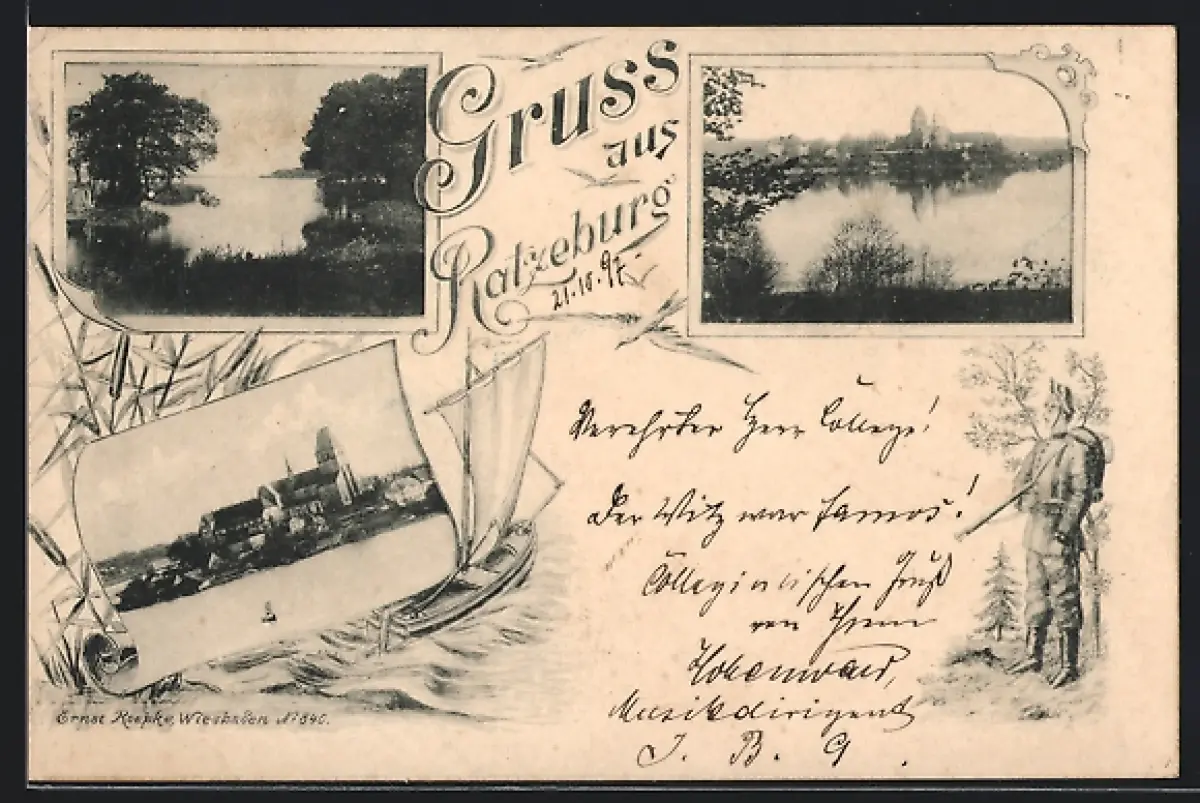 Gruss
aus
Ratzeburg
21.10.97.
Verehrter Herr College!
Der Witz war famos!
Collegialischen Gruß
von Ihrem
Hohenwald,
Musikdirigent
J. B. 9.
Ernst Roepke, Wiesbaden № 840.